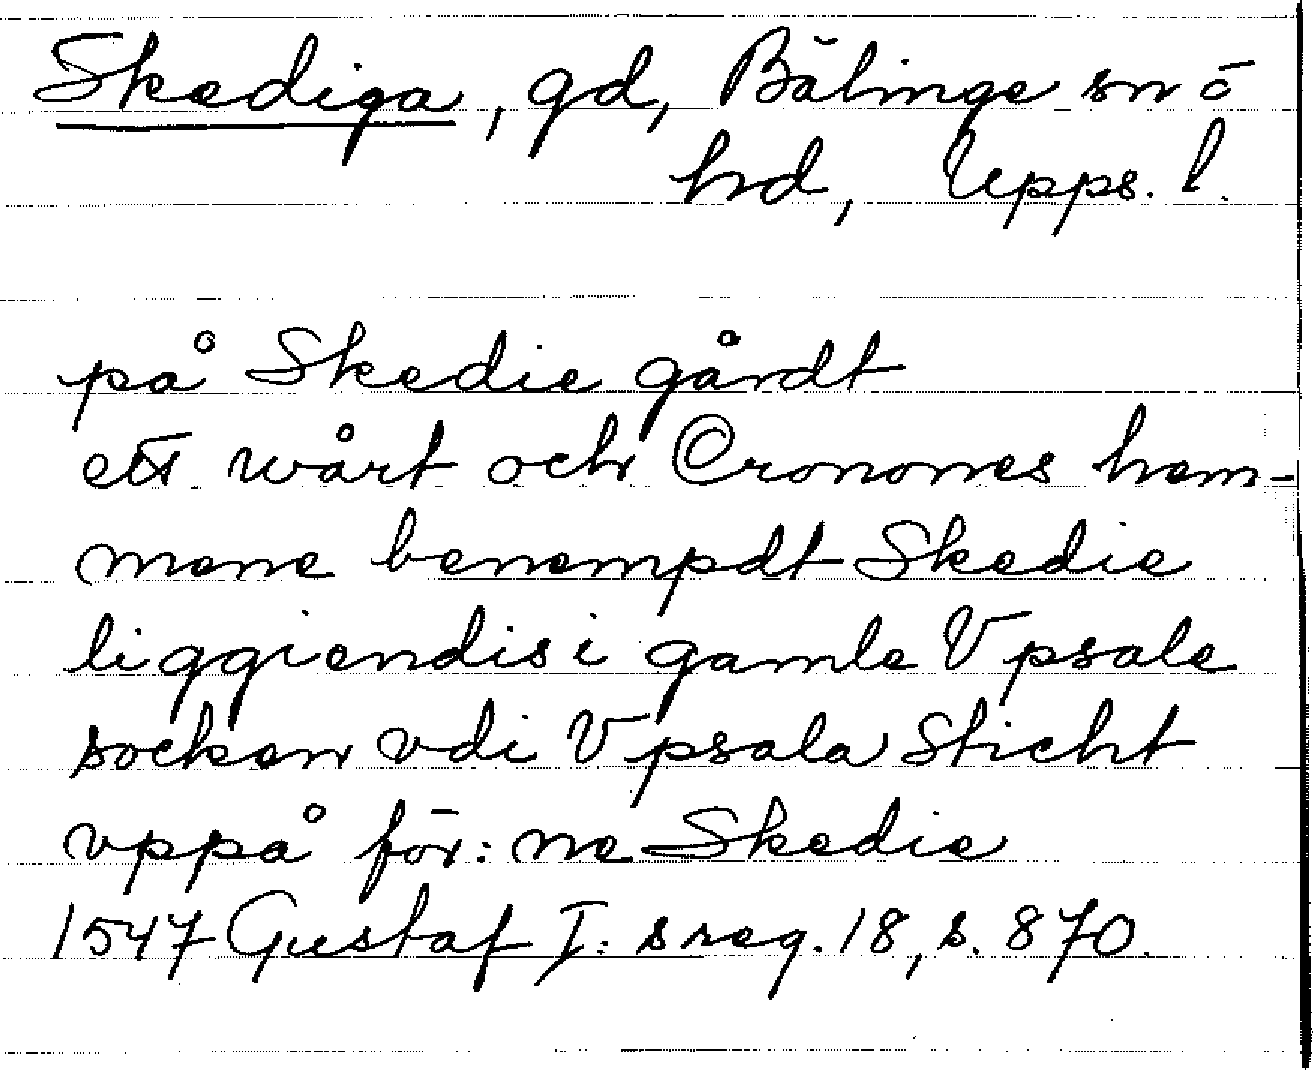 Skediga, gd, Bälinge sn ō
hd, Upps. l.
på Skedie gårdt
ett wårt och Cronones hem-
mene benempdt Skedie
liggiendis i gamle Vpsale
socken vdi Vpsala Sticht
vppå för: ne Skedie
1547 Gustaf I: s reg. 18, s. 870.